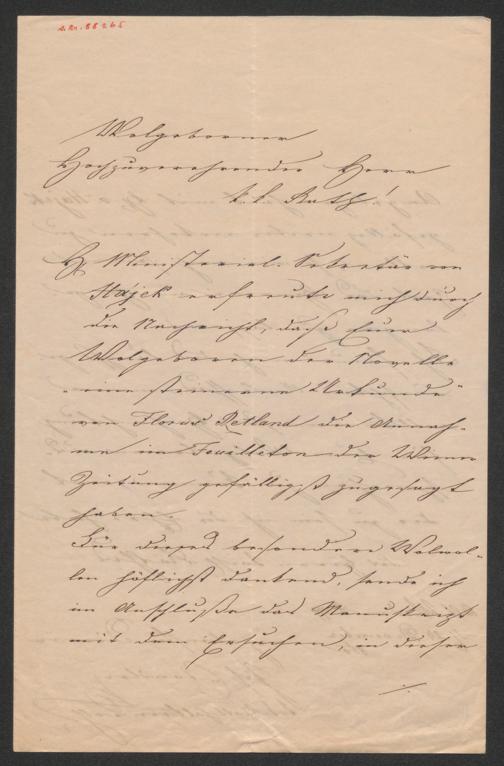 A.N. 88265
Wolgeborner
Hochzuverehrender Herr
k. k. Rath!
H Ministerial-Sekretär von
Hájek erfreute mich durch
die Nachricht, daß Euer
Wolgeboren der Novelle
„eine steinerne Urkunde"
von Florus Retland die Annah-
me im Feuilleton der Wiener
Zeitung gefälligst zugesagt
haben.
Für dieses besondere Wolwol-
len höflichst dankend, sende ich
im Anschluße das Manuskript
mit dem Ersuchen, in dieser
./.